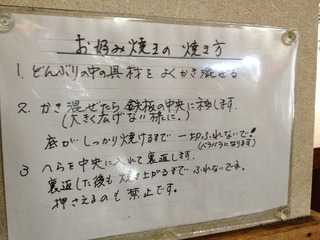 お好み焼きの焼き方
1. どんぶりの中の具材をよくかき混ぜる
2. かき混ぜたら鉄板の中央に移します。
(大きく広げない様に。)
底がしっかり焼けるまで一切ふれないで!
(バラバラになります)
3 へらを中央に入れて裏返します。
裏返した後も焼き上がるまでふれないでネ
押さえるのも禁止です。